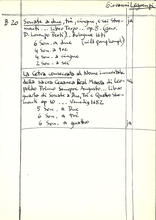 Giovanni Legrenzi
B 20 Sonate a due, trè, cinque, e sei Stro-
menti ... Libro Terzo ... op. 8. (gew.
D. Lorenzo Perti). Bologna 1671
6 Son. a due
4 Son. a tre
4 Son. a cinque
2 Son. a sei
ja
La Cetra consecrata al Nome immortale
della Sacra Cesarea Real Maestà di Leo-
poldo Primo Sempre Augusto. Libro
quarto di Sonate a Due, Tre è Quatro Stro-
menti op 10 ... Venedig 1682
5 Son. a due
6 Son. a tre
6 Son. a quattro
ja